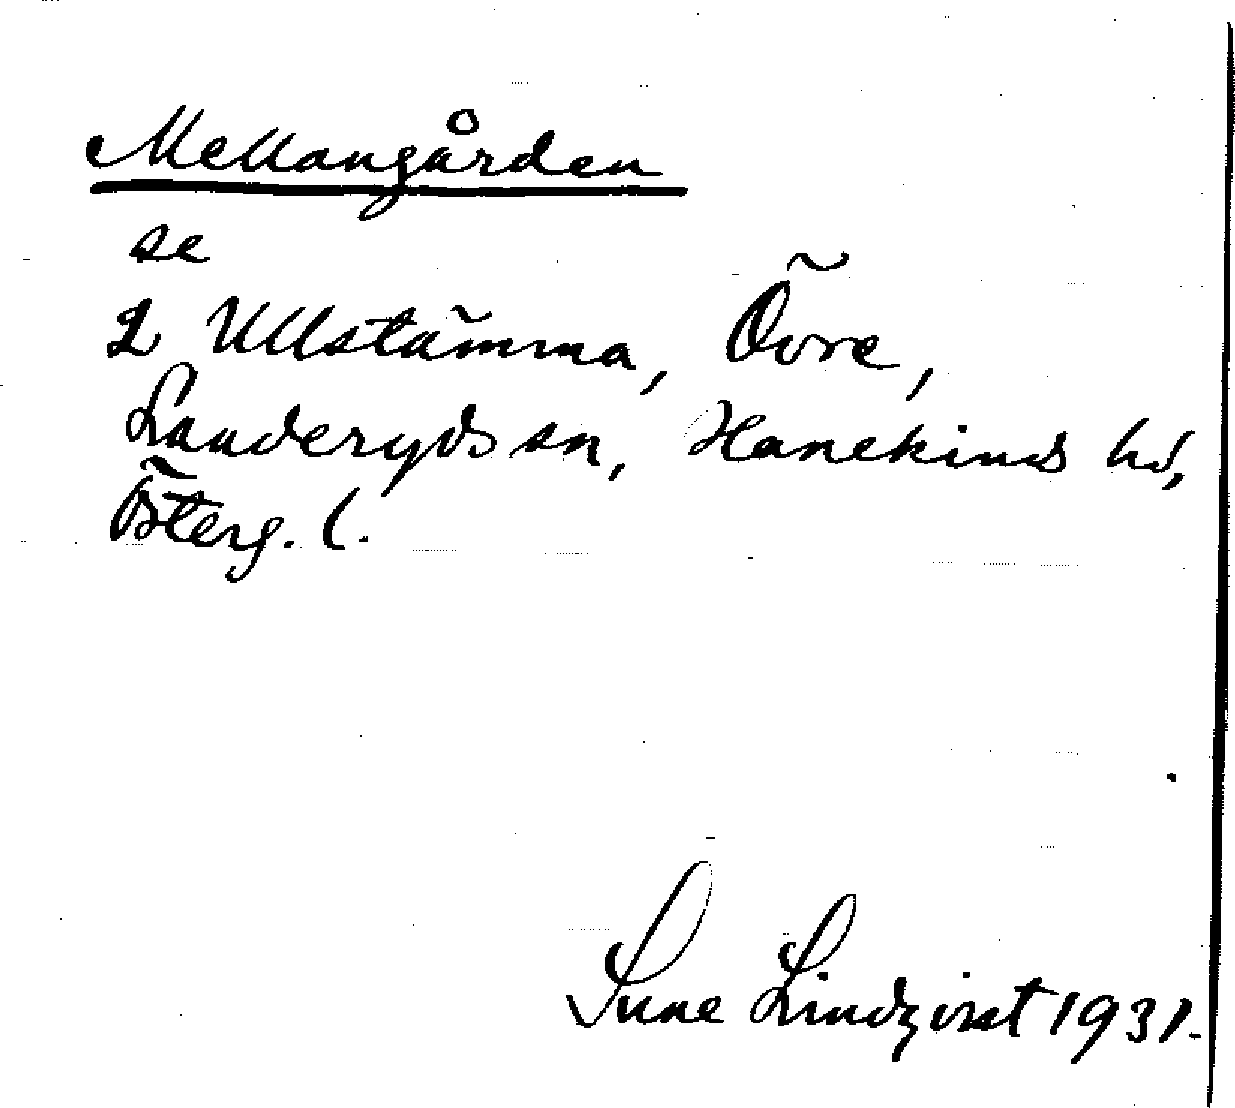 Mellangården
se
2 Ullstämma, Övre,
Landeryds sn, Hanekinds hd,
Österg. l.
Sune Lindqvist 1931.